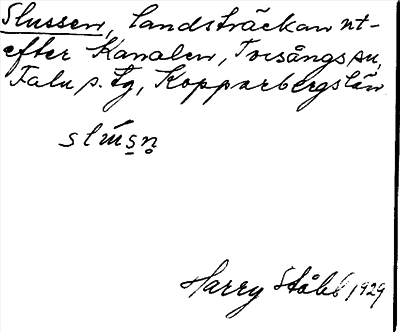 Slussen, landsträckan ut-
efter Kanalen, Torsångs sn,
Falu s. tg, Kopparbergs län
slúsn̥
Harry Ståhl 1929